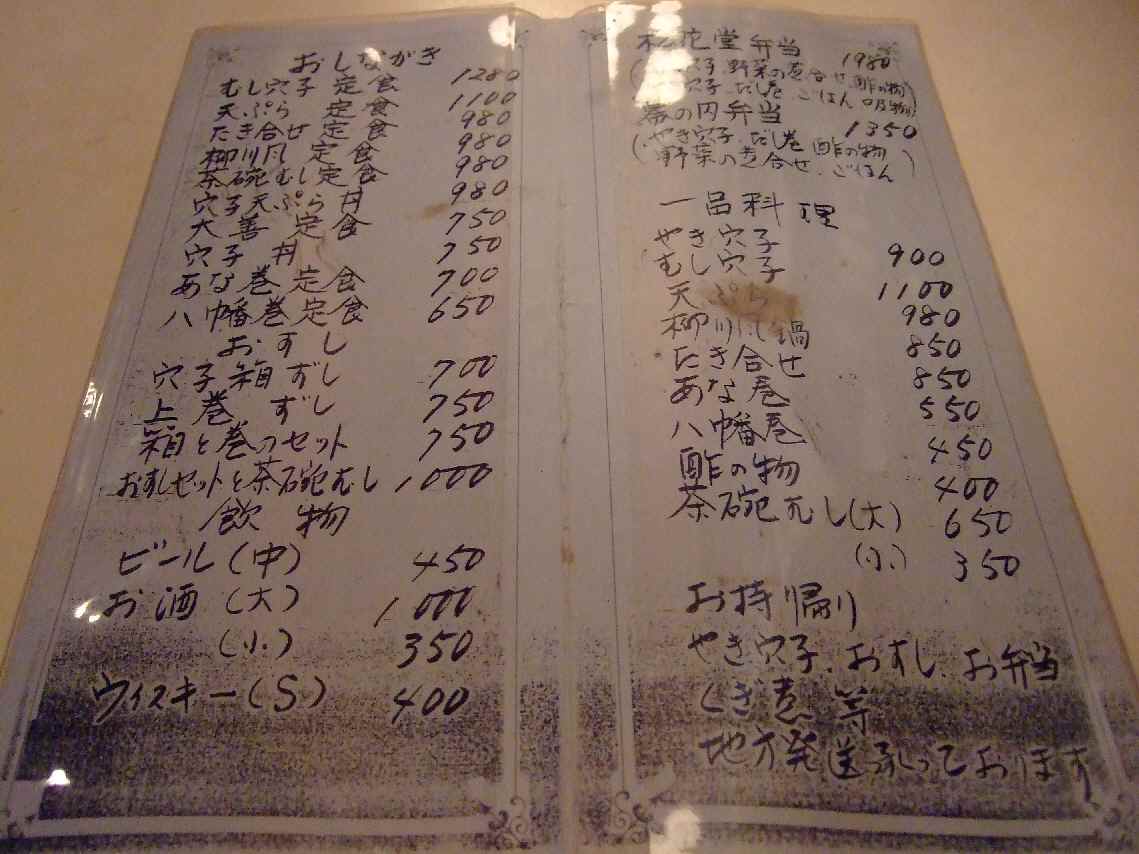 おしながき
むし穴子 定食 1280
天ぷら 定食 1100
たき合せ 定食 980
柳川風 定食 980
茶碗むし定食 980
穴子天ぷら丼 980
大善 定食 750
穴子 丼 750
あな巻 定食 700
八幡巻定食 650
おすし
穴子箱ずし 700
上巻 ずし 750
箱と巻のセット 750
おすしセットと茶碗むし 1,000
飲物
ビール(中) 450
お酒(大) 1,000
(小) 350
ウィスキー(S) 400
堂弁当 1980
穴子 野菜の煮合せ 酢の物
穴子 だし巻 ごはん 吸物)
幕の内弁当 1350
(やき穴子 だし巻 酢の物
野菜の煮合せ、ごはん)
一品料理
やき穴子 900
むし穴子 1100
天ぷら 980
柳川風鍋 850
たき合せ 850
あな巻 550
八幡巻 450
酢の物 400
茶碗むし(大) 650
(小) 350
お持帰り
やき穴子、おすし、お弁当
くぎ煮 等
地方発送承っております